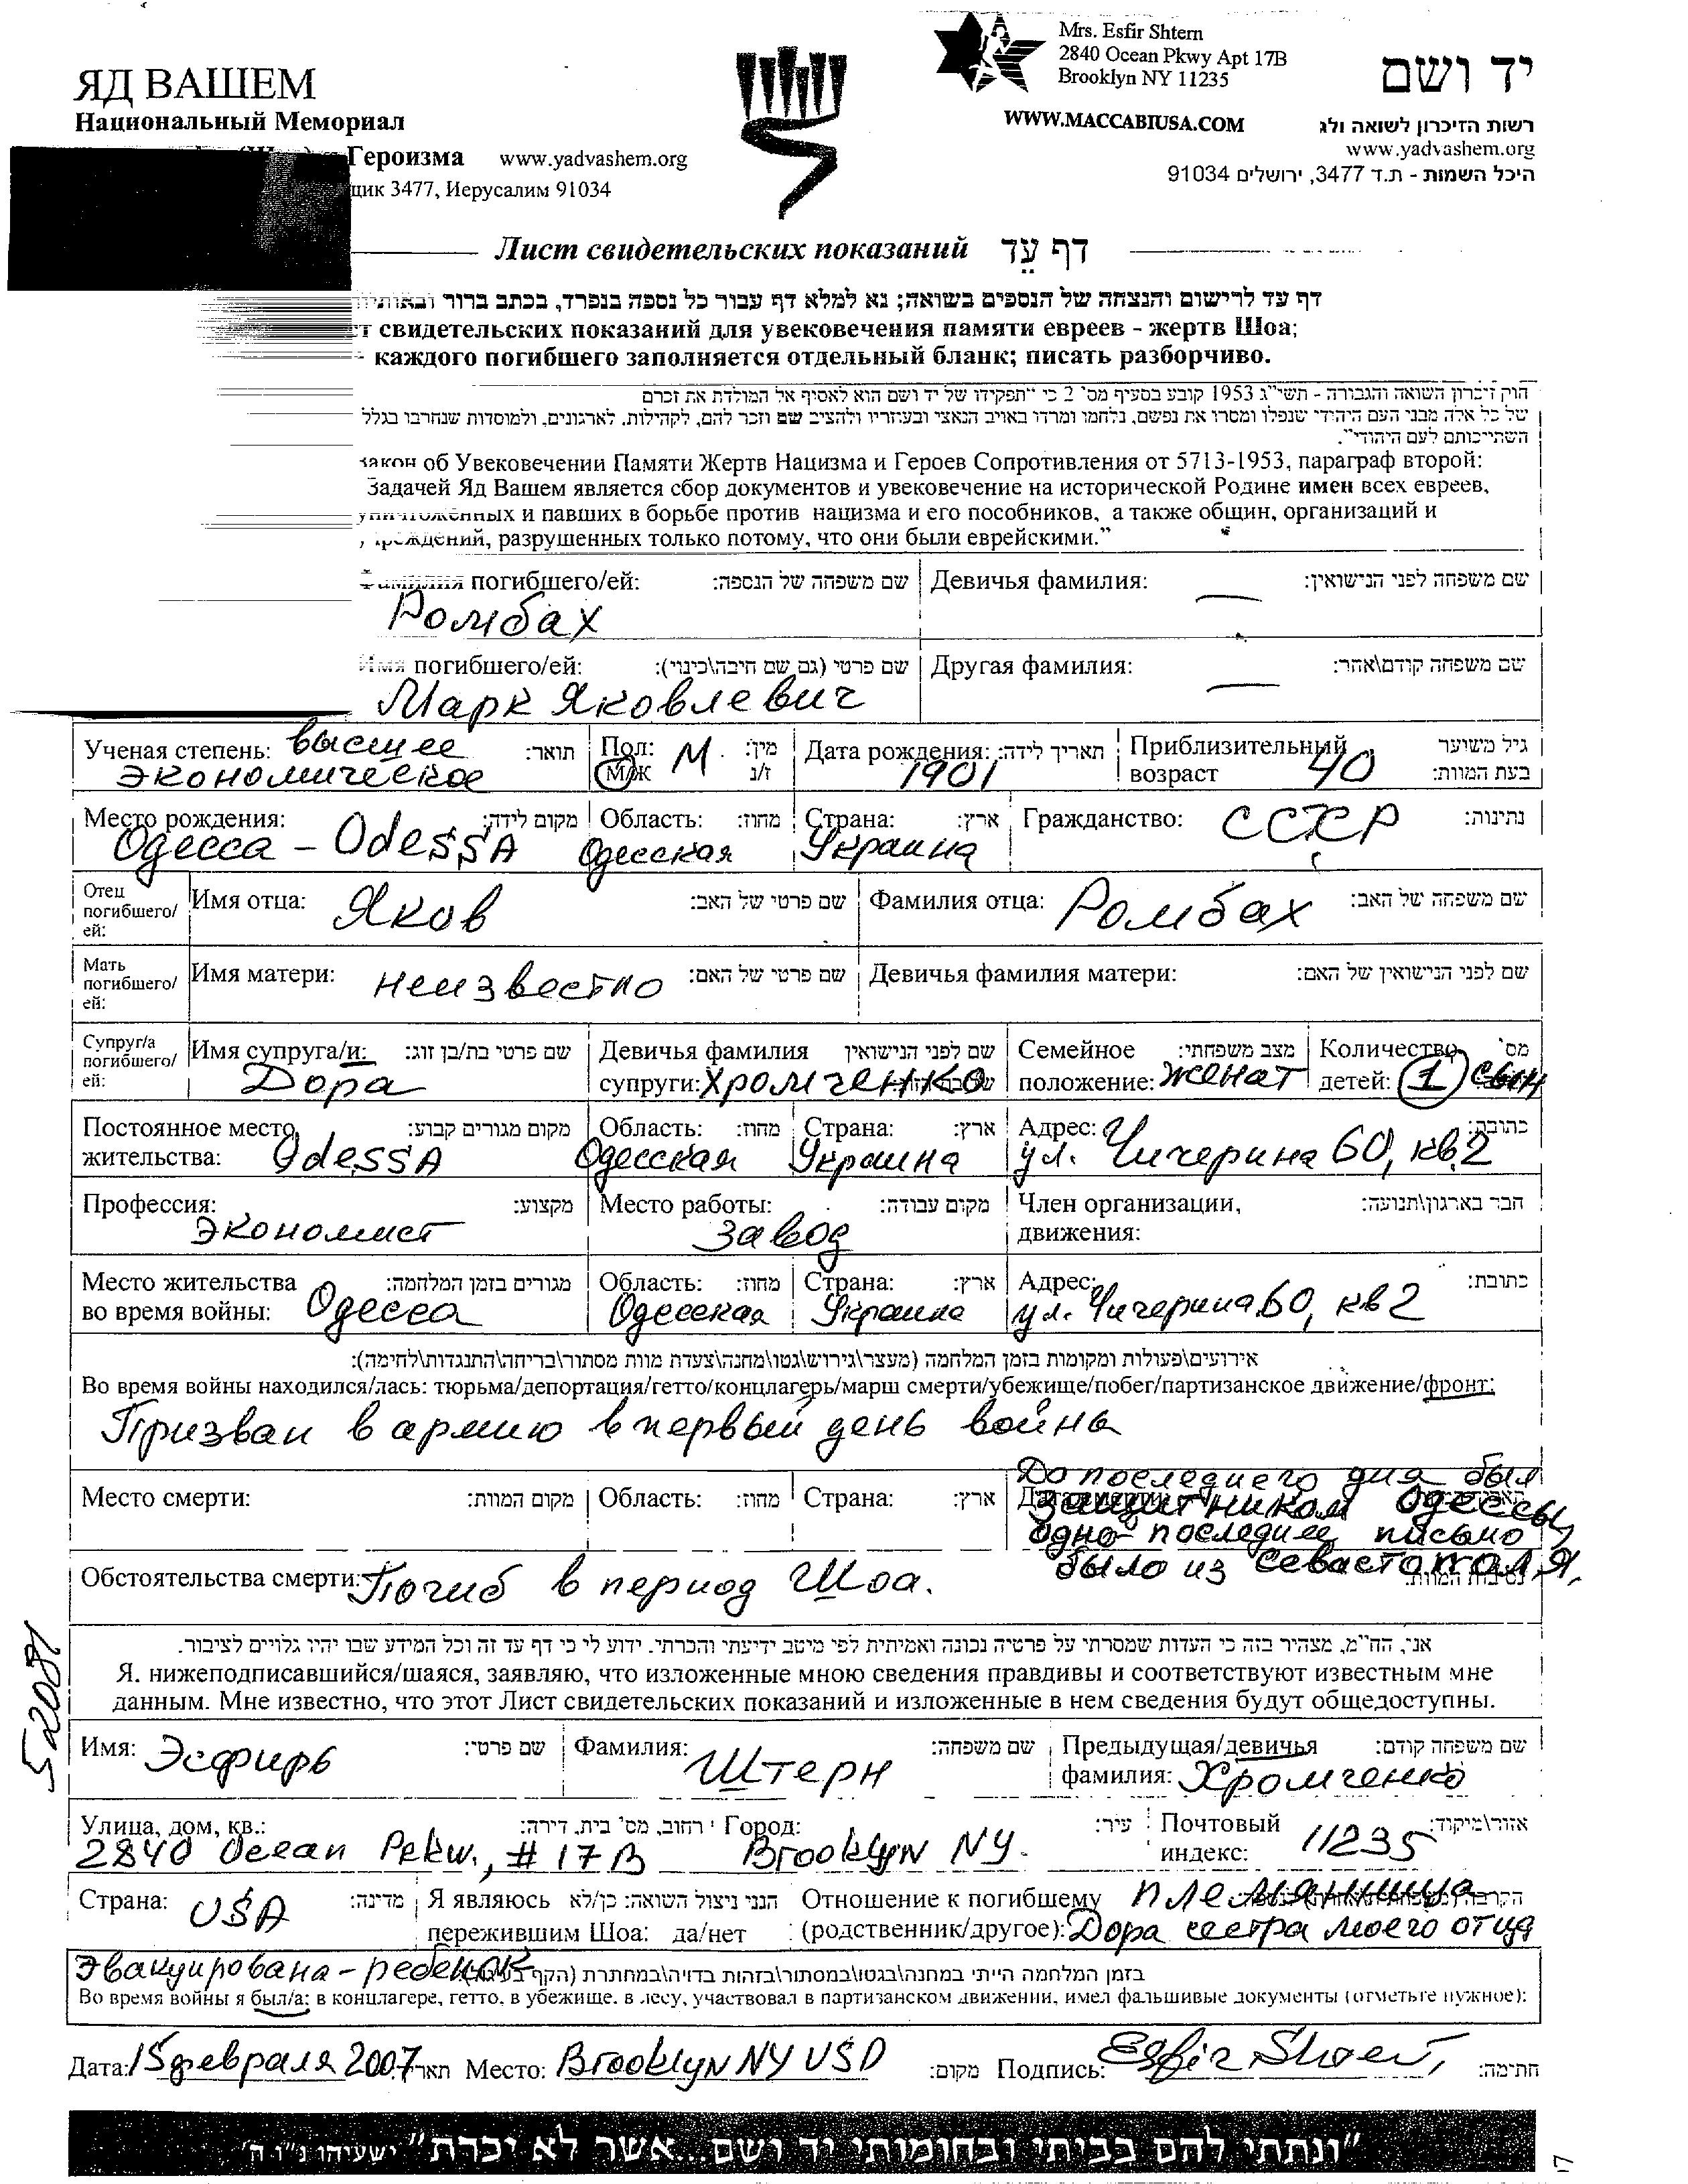 Mrs. Esfir Shtern
2840 Ocean Pkwy Apt 17B
Brooklyn NY 11235
WWW.MACCABIUSA.COM
ЯД ВАШЕМ
Национальный Мемориал
Героизма www.yadvashem.org
щик 3477, Иерусалим 91034
יד ושם
רשות הזיכרון לשואה ולג
www.yadvashem.org
היכל השמות - ת.ד 3477, ירושלים 91034
Лист свидетельских показаний דף עֵד
דף עד לרישום והנצחה של הנספים בשואה; נא למלא דף עבור כל נספה בנפרד, בכתב ברור
т свидетельских показаний для увековечения памяти евреев - жертв Шоа;
- каждого погибшего заполняется отдельный бланк; писать разборчиво.
חוק זיכרון השואה והגבורה - תשי"ג 1953 קובע בסעיף מס' 2 כי "תפקידו של יד ושם הוא לאסיף אל המולדת את זכרם
של כל אלה מבני העם היהודי שנפלו ומסרו את נפשם, נלחמו ומרדו באויב הנאצי ובעוזריו ולהציב שם וזכר להם, לקהילות, לארגונים, ולמוסדות שנחרבו בגלל
השתייכותם לעם היהודי".
закон об Увековечении Памяти Жертв Нацизма и Героев Сопротивления от 5713-1953, параграф второй:
Задачей Яд Вашем является сбор документов и увековечение на исторической Родине имен всех евреев,
уничтоженных и павших в борьбе против нацизма и его пособников, а также общин, организаций и
чреждений, разрушенных только потому, что они были еврейскими."
Фамилия погибшего/ей: שם משפחה של הנספה: Девичья фамилия: שם משפחה לפני הנישואין:
Ромбах —
Имя погибшего/ей: שם פרטי (גם שם חיבה\כינוי): Другая фамилия: שם משפחה קודם\אחר:
Марк Яковлевич —
Ученая степень: высшее תואר: Пол: М מין: Дата рождения: תאריך לידה: Приблизительный גיל משוער
экономическое М/Ж ז/נ 1901 возраст 40 בעת המוות:
Место рождения: מקום לידה: Область: מחוז: Страна: ארץ: Гражданство: СССР נתינות:
Одесса - OdeSSA Одесская Украина
Отец погибшего/ей: Имя отца: Яков שם פרטי של האב: Фамилия отца: Ромбах שם משפחה של האב:
Мать погибшего/ей: Имя матери: неизвестно שם פרטי של האם: Девичья фамилия матери: שם לפני הנישואין של האם:
Супруг/а погибшего/ей: Имя супруга/и: שם פרטי בת/בן זוג: Девичья фамилия שם לפני הנישואין Семейное מצב משפחתי: Количество מס'
Дора супруги: Хромченко положение: женат детей: 1 сын
Постоянное место מקום מגורים קבוע: Область: מחוז: Страна: ארץ: Адрес: כתובת:
жительства: OdeSSA Одесская Украина ул. Чичерина 60, кв. 2
Профессия: מקצוע: Место работы: מקום עבודה: Член организации, חבר בארגון\תנועה:
экономист завод движения:
Место жительства מגורים בזמן המלחמה: Область: מחוז: Страна: ארץ: Адрес: כתובת:
во время войны: Одесса Одесская Украина ул. Чичерина 60, кв 2
אירועים\פעולות ומקומות בזמן המלחמה (מעצר\גירוש\גטו\מחנה\צעדת מוות מסתור\בריחה\התנגדות\לחימה):
Во время войны находился/лась: тюрьма/депортация/гетто/концлагерь/марш смерти/убежище/побег/партизанское движение/фронт:
Призван в армию в первый день война
До последнего дня был
Место смерти: מקום המוות: Область: מחוז: Страна: ארץ: защитником Одессы,
одно последнее письмо
было из Севастополя.
Обстоятельства смерти: Погиб в период Шоа. נסיבות המוות:
אני, הח"מ, מצהיר בזה כי העדות שמסרתי על פרטיה נכונה ואמיתית לפי מיטב ידיעתי והכרתי. ידוע לי כי דף עד זה וכל המידע שבו יהיו גלויים לציבור.
Я. нижеподписавшийся/шаяся, заявляю, что изложенные мною сведения правдивы и соответствуют известным мне
данным. Мне известно, что этот Лист свидетельских показаний и изложенные в нем сведения будут общедоступны.
52081
Имя: Эсфирь שם פרטי: Фамилия: Штерн שם משפחה: Предыдущая/девичья שם משפחה קודם:
фамилия: Хромченко
Улица, дом, кв.: רחוב, מס' בית, דירה: Город: עיר: Почтовый אזור\מיקוד:
2840 Ocean Pkw., # 17B Brooklyn NY. индекс: 11235
Страна: USA מדינה: Я являюсь הנני ניצול השואה: כן/לא Отношение к погибшему племянница
пережившим Шоа: да/нет (родственник/другое): Дора сестра моего отца
Эвакуирована - ребенок בזמן המלחמה הייתי במחנה\בגטו\במסתור\בזהות בדויה\במחתרת
Во время войны я был/а: в концлагере, гетто, в убежище. в лесу, участвовал в партизанском движении, имел фальшивые документы (отметьте нужное):
Дата: 15 февраля 2007 Место: Brooklyn NY USD מקום: Подпись: Esfir Shtern חתימה:
"ונתתי להם בביתי ובחומותי יד ושם...אשר לא יכרת" ישעיהו נ"ו ה'